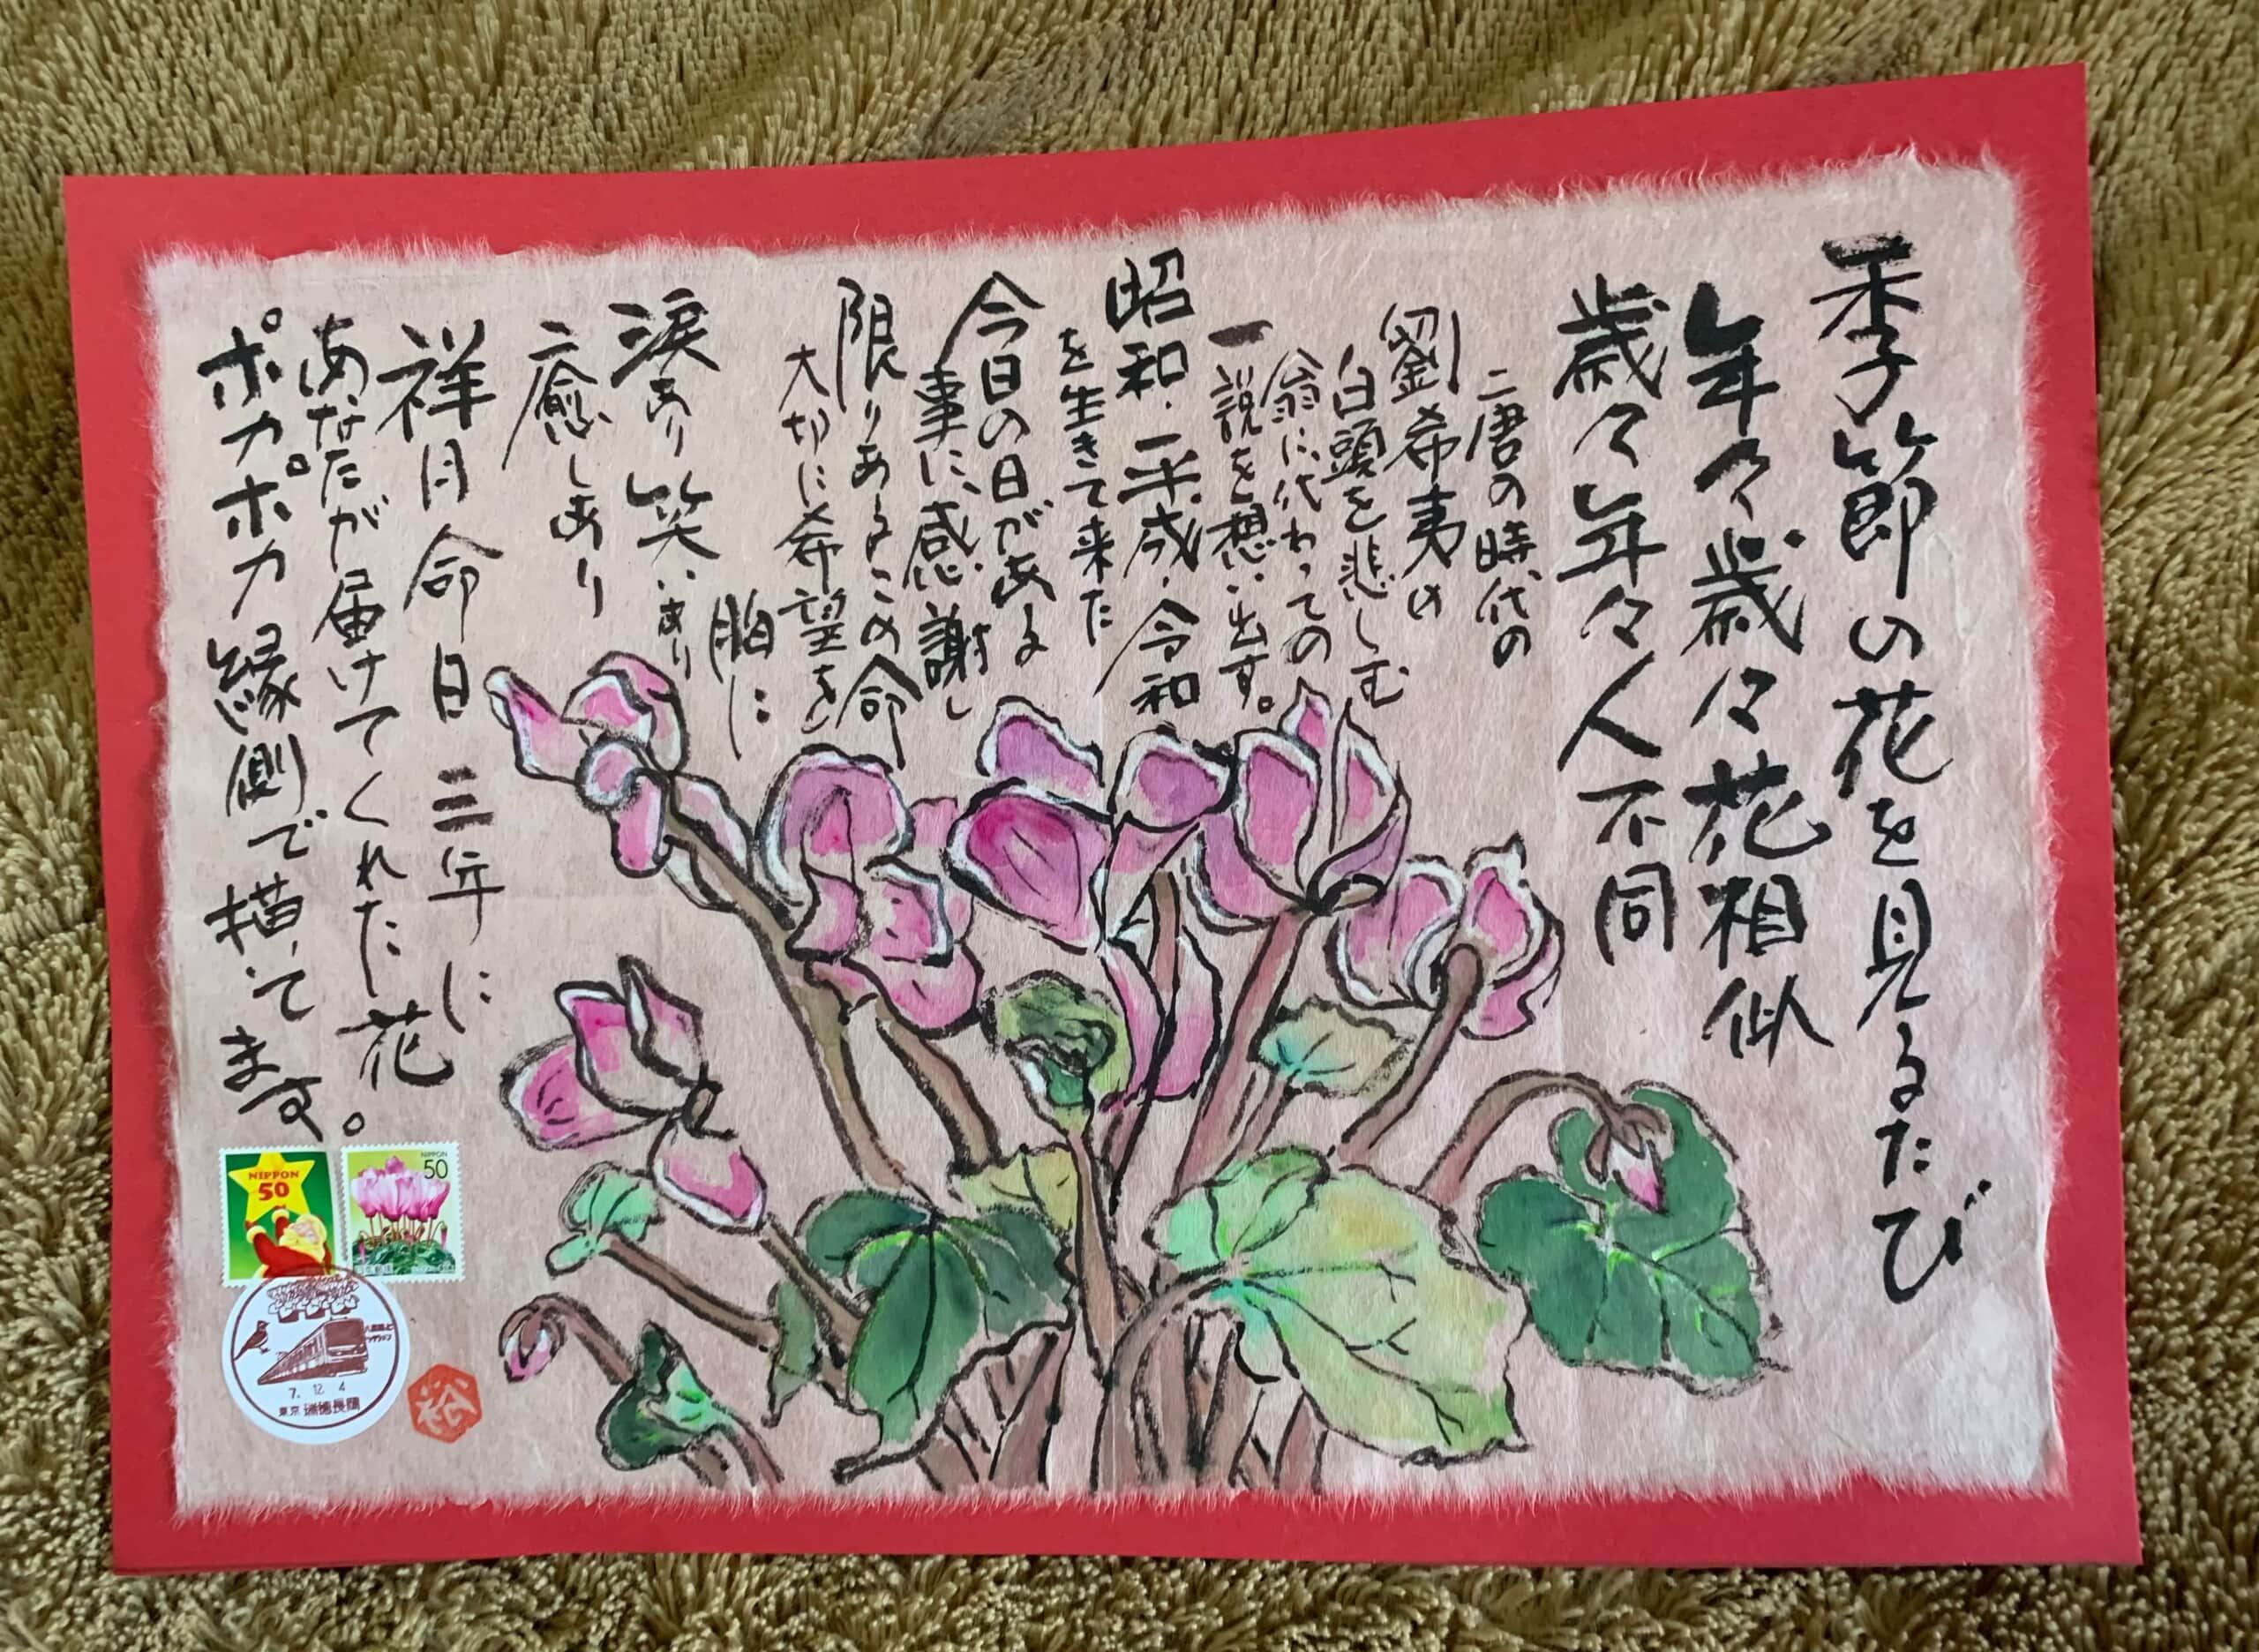 季節の花を見るたび
年々歳々花相似
歳々年々人不同
唐の時代の
劉希夷の
白頭を悲しむ
翁に代わっての
一説を想い出す。
昭和・平成・令和
を生きて来た
今日の日がある
事に、感謝し
限りあるこの命
大切に希望を
胸に
涙あり笑いあり
癒しあり
祥月命日 三年に
あなたが届けてくれた花。
ポカポカ縁側で描いてます
NIPPON
50
NIPPON
50
7. 12. 4
東京 瑞穂長岡